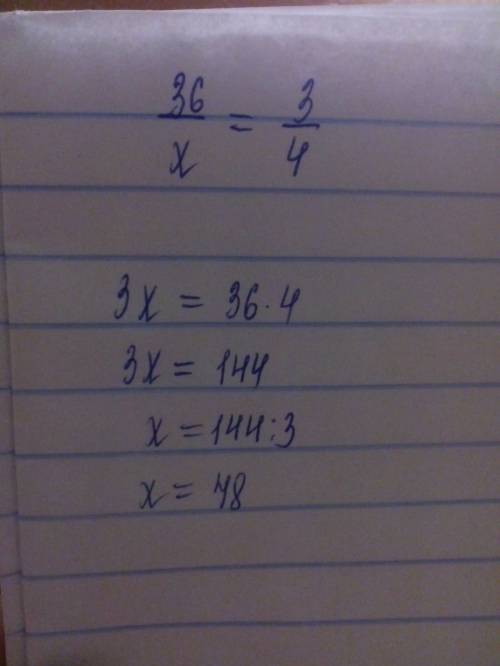 36/x = 3/4
3x = 36·4
3x = 144
x = 144:3
x = 48